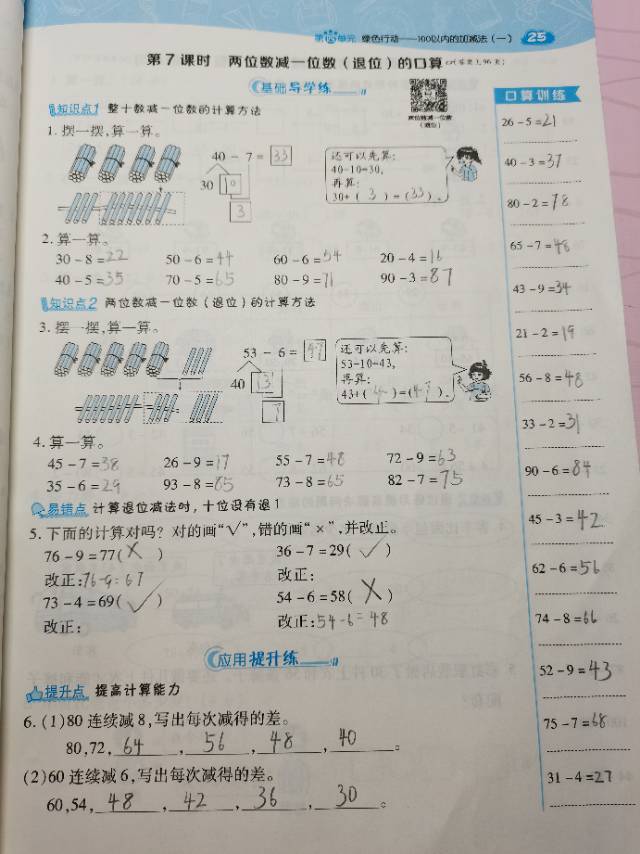 第四单元 绿色行动——100以内的加减法（一） 25
第7课时 两位数减一位数（退位）的口算
基础导学练
知识点1 整十数减一位数的计算方法
两位数减一位数
（退位）
1. 摆一摆,算一算。
40 - 7 = 33
30 10
3
还可以先算:
40-10=30,
再算:
30+( 3 )=(33)。
2. 算一算。
30 - 8 = 22 50 - 6 = 44 60 - 6 = 54 20 - 4 = 16
40 - 5 = 35 70 - 5 = 65 80 - 9 = 71 90 - 3 = 87
知识点2 两位数减一位数（退位）的计算方法
3. 摆一摆,算一算。
53 - 6 = 47
40 13
7
还可以先算:
53-10=43,
再算:
43+( 4 )=(47)。
4. 算一算。
45 - 7 = 38 26 - 9 = 17 55 - 7 = 48 72 - 9 = 63
35 - 6 = 29 93 - 8 = 85 73 - 8 = 65 82 - 7 = 75
易错点 计算退位减法时,十位没有退1
5. 下面的计算对吗？对的画“√”,错的画“×”,并改正。
76 - 9 = 77( × ) 36 - 7 = 29( √ )
改正: 76-9=67 改正:
73 - 4 = 69( √ ) 54 - 6 = 58( × )
改正: 改正: 54-6=48
应用提升练
提升点 提高计算能力
6. (1)80 连续减 8,写出每次减得的差。
80,72, 64 , 56 , 48 , 40 。
(2)60 连续减 6,写出每次减得的差。
60,54, 48 , 42 , 36 , 30 。
口算训练
26 - 5 = 21
40 - 3 = 37
80 - 2 = 78
65 - 7 = 48
43 - 9 = 34
21 - 2 = 19
56 - 8 = 48
33 - 2 = 31
90 - 6 = 84
45 - 3 = 42
62 - 6 = 56
74 - 8 = 66
52 - 9 = 43
75 - 7 = 68
31 - 4 = 27